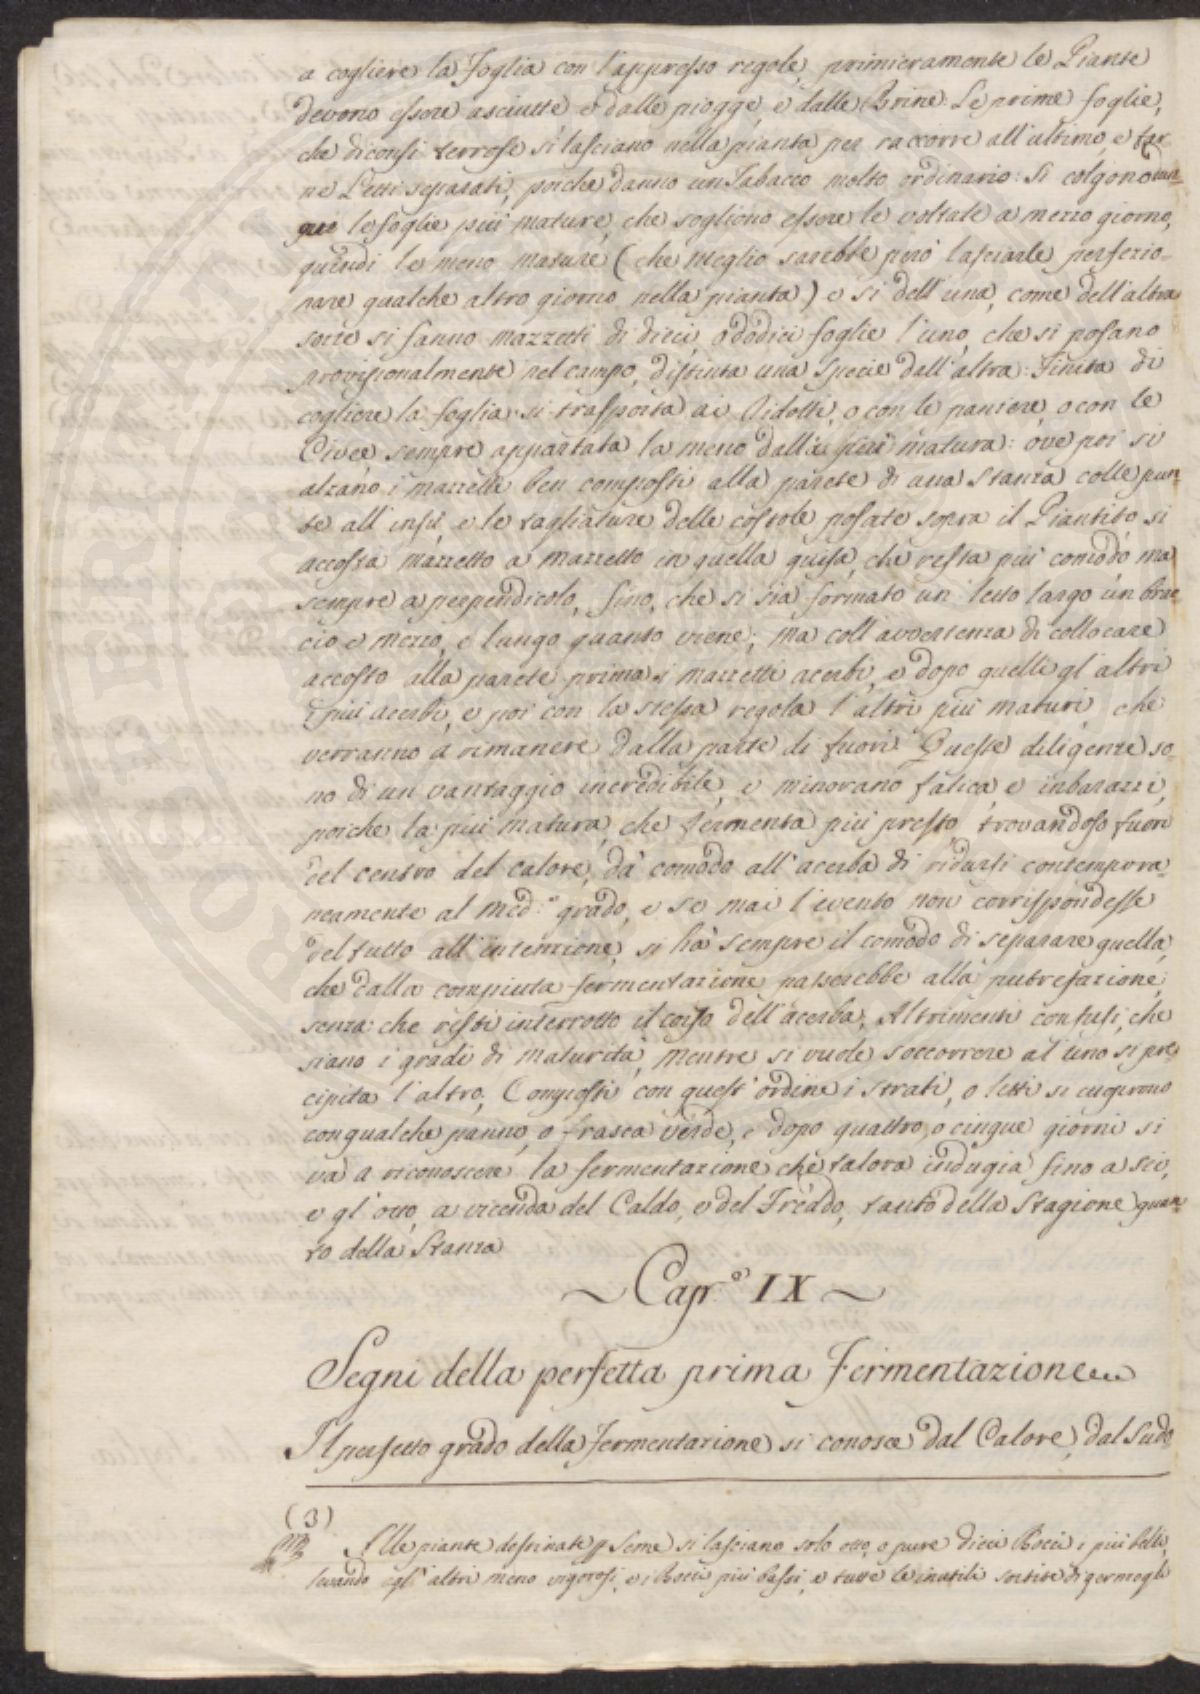 a cogliere la Foglia con l'appresso regole, primieramente le Piante
devono essere asciutte e dalle piogge, e dalle Brine. Le prime foglie,
che diconsi terrose si lasciano nella pianta per raccorre all'ultimo, e far-
ne Letti separati, poiche danno un Tabacco molto ordinario: Si colgono dun-
que le foglie più mature, che sogliono essere le voltate a mezzo giorno,
quindi le meno mature (che meglio sarebbe però lasciarle perfezio-
nare qualche altro giorno nella pianta) e si dell'una, come dell'altra
sorte si fanno mazzetti di dieci, o dodici foglie l'uno, che si posano
provisionalmente nel campo, distinta una specie dall'altra: Finita di
cogliere la foglia si trasporta ai Ridotti, o con le paniere, o con le
Civee, sempre appartata la meno dalla più matura: ove poi si
alzano i mazzetti ben composti alla parete di una Stanza colle pun-
te all'insù, e le tagliature delle costole posate sopra il Piantito si
accosta mazzetto a mazzetto in quella guisa, che resta più comodo ma
sempre a perpendicolo, fino, che si sia formato un letto largo un brac
cio e mezzo, e lungo quanto viene; ma coll'avvertenza di collocare
accosto alla parete prima i mazzetti acerbi, e dopo quelli gl'altri
più acerbi, e poi con la stessa regola l'altri più maturi, che
verranno a rimanere dalla parte di fuori. Queste diligenze so-
no di un vantaggio incredibile, e minorano fatica, e inbarazzi,
poiche la più matura, che fermenta più presto, trovandosi fuori
del centro del calore, dà comodo all'acerba di ridursi contempora-
neamente al med:o grado, e se mai l'evento non corrispondesse
del tutto all'intenzione, si hà sempre il comodo di separare quella,
che dalla compiuta fermentazione passerebbe alla putrefazione,
senza che resti interrotto il corso dell'acerba. Altrimenti confusi, che
siano i gradi di maturità, mentre si vuole soccorrere al'uno si pre
cipita l'altro. Composti con quest'ordine i strati, o letti si cuoprono
con qualche panno, o frasca verde, e dopo quattro, o cinque giorni si
va a riconoscere la fermentazione che talora indugia fino a sei,
e gl'otto, a vicenda del Caldo, e del Freddo, tanto della Stagione quan-
to della Stanza
~ Cap.o IX ~
Segni della perfetta prima Fermentazione
Il perfetto grado della Fermentazione si conosce dal Calore, dal Sudo
(3)
Alle piante destinate p seme si lasciano solo otto, o pure dieci Bocci i più belli,
levando agl'altri meno vigorosi, e i Bocci più bassi, e tutte le inutili sortite di germogli